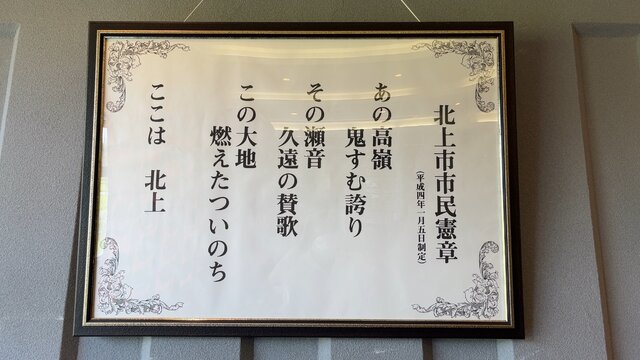 北上市市民憲章
(平成四年一月五日制定)
あの高嶺
鬼すむ誇り
その瀬音
久遠の賛歌
この大地
燃えたついのち
ここは 北上